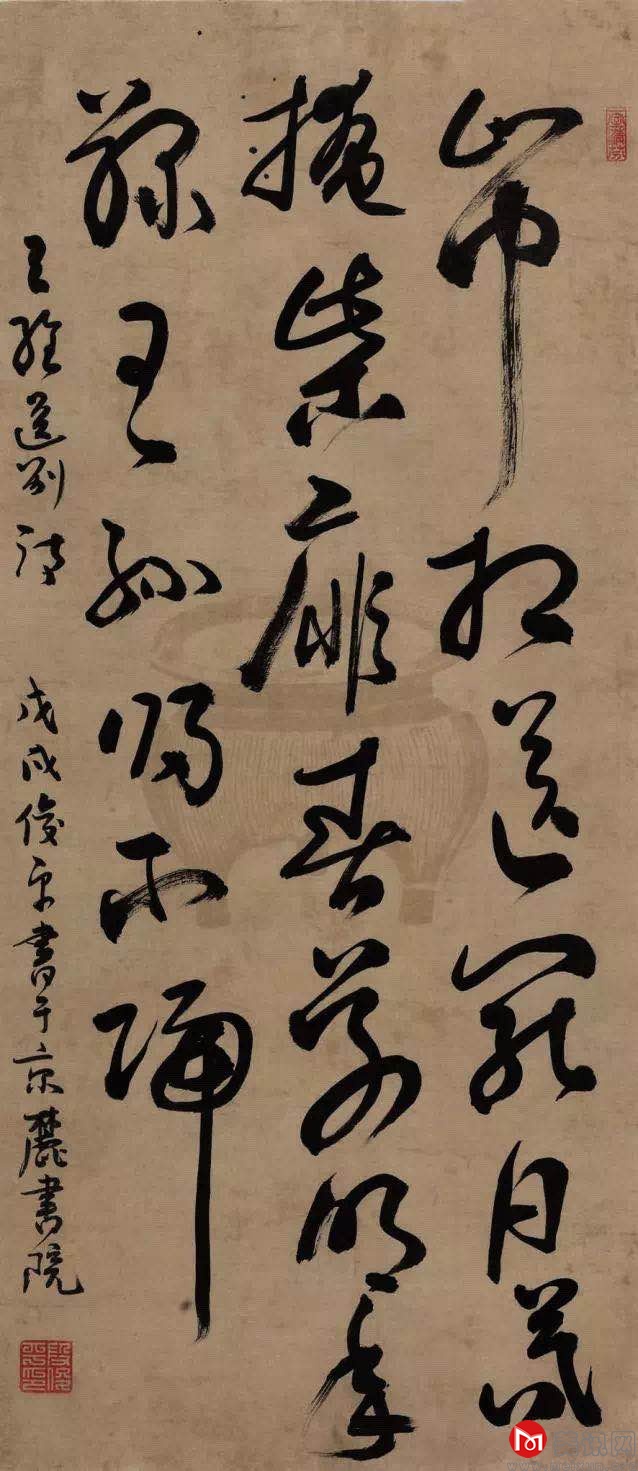 山中相送罷日暮
掩柴扉春草明年
綠王孫歸不歸
王維送別詩 戊戌俊平書于京麓書院
段俊平印